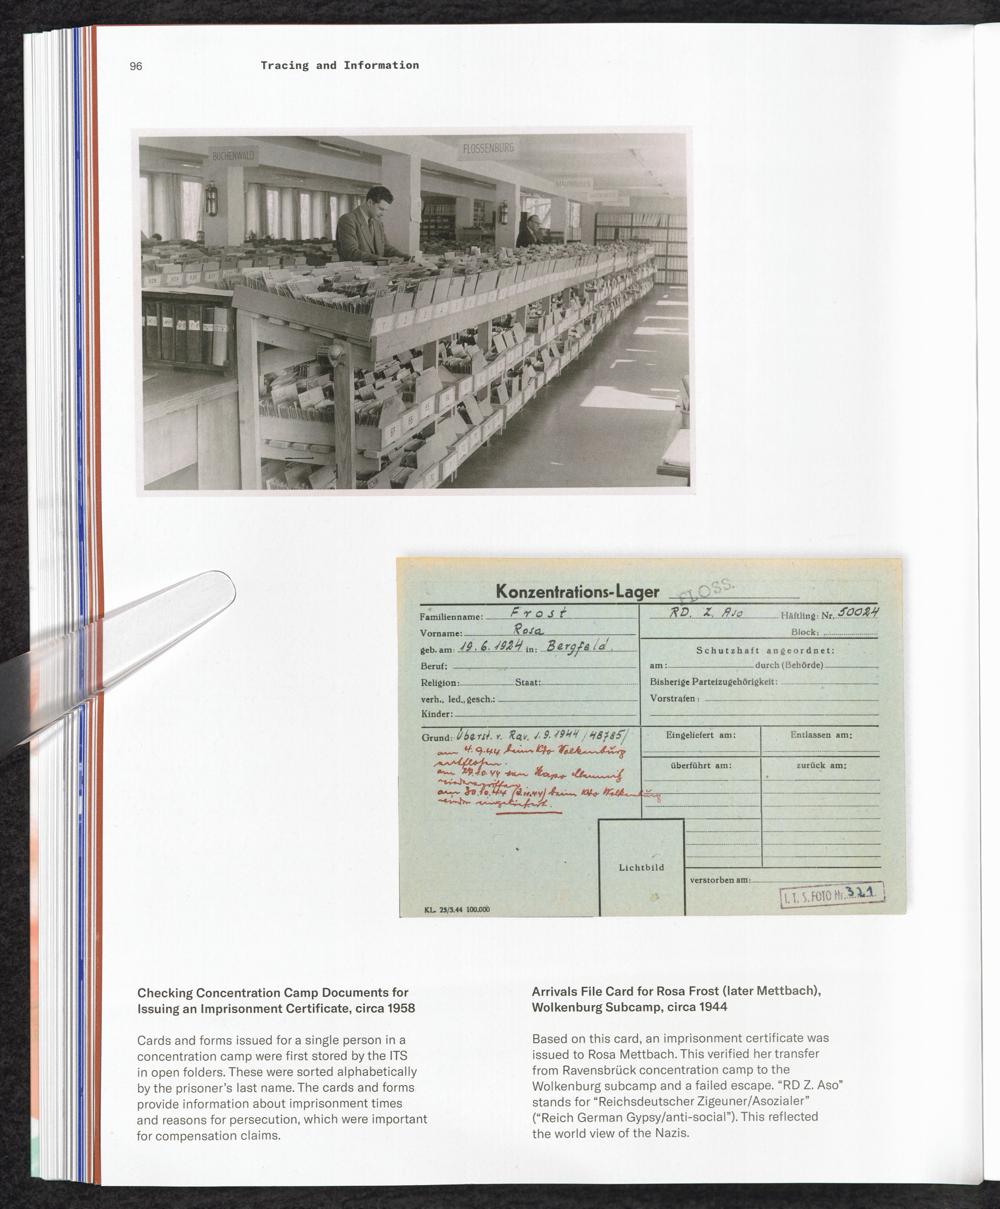 96
Tracing and Information
BUCHENWALD
FLOSSENBURG
MAUTHAUSEN
Konzentrations-Lager FLOSS.
Familienname: Frost
Vorname: Rosa
geb. am: 19.6.1924 in: Bergfeld.
Beruf:
Religion: Staat:
verh., led., gesch.:
Kinder:
RD. Z. Aso Häftling: Nr. 50024
Block:
Schutzhaft angeordnet:
am: durch (Behörde)
Bisherige Parteizugehörigkeit:
Vorstrafen:
Grund: Überst. v. Rav. 1.9.1944 /48785/
am 4.9.44 beim Kdo Wolkenburg
entflohen.
am 29.10.44 von
am 30.10.44 beim Kdo Wolkenburg
wieder eingeliefert.
Eingeliefert am: Entlassen am:
überführt am: zurück am:
Lichtbild
verstorben am:
I. T. S. FOTO Nr. 321
KL. 25/5.44 100.000
Checking Concentration Camp Documents for
Issuing an Imprisonment Certificate, circa 1958
Cards and forms issued for a single person in a
concentration camp were first stored by the ITS
in open folders. These were sorted alphabetically
by the prisoner's last name. The cards and forms
provide information about imprisonment times
and reasons for persecution, which were important
for compensation claims.
Arrivals File Card for Rosa Frost (later Mettbach),
Wolkenburg Subcamp, circa 1944
Based on this card, an imprisonment certificate was
issued to Rosa Mettbach. This verified her transfer
from Ravensbrück concentration camp to the
Wolkenburg subcamp and a failed escape. “RD Z. Aso”
stands for “Reichsdeutscher Zigeuner/Asozialer”
(“Reich German Gypsy/anti-social”). This reflected
the world view of the Nazis.